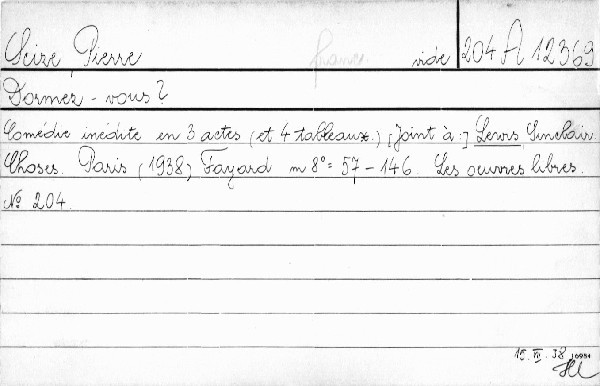 Scize, Pierre france. vide 204 A 12369
Dormez-vous?
Comédie inédite en 3 actes (et 4 tableaux.) [Joint à:] Lewis, Sinclair
Choses. Paris (1938) Fayard m 8°= 57-146. Les oeuvres libres.
No 204.
15. VII. 38 10981